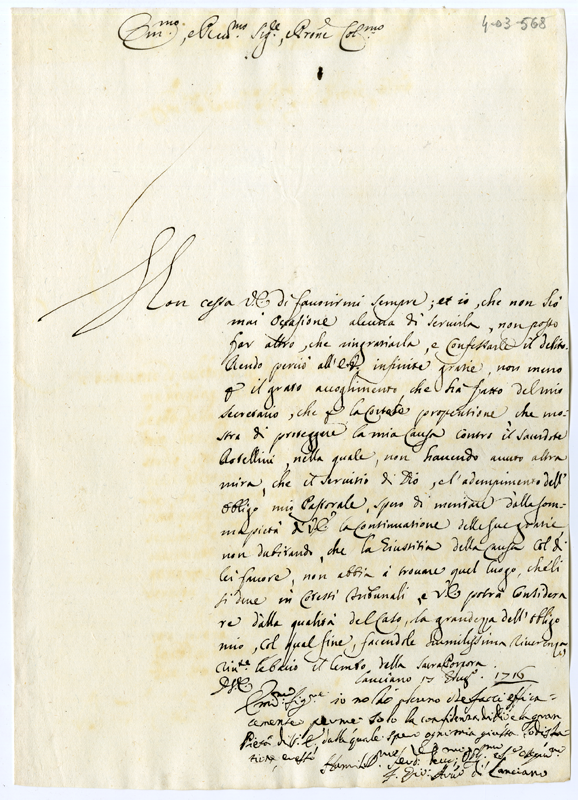 4-03-568
Em.mo, e Reud.mo Sig.re, e Prone Col.mo
Non cessa V.E. di fauorirmi sempre; et io, che non hò
mai Ocasione alcuna di seruirla, non posso
far altro, che ringraziarla, e Confessarle il debito.
Rendo perciò all'E.V. infinite grazie, non meno
p il grato accoglimento, che hà fatto del mio
Secretario, che p la Cortese propentione che mo-
stra di proteggere la mia Causa contro il Sacerdote
nella quale, non hauendo auuto altra
mira, che il seruitio di Dio, e l'adempimento dell'
obligo mio Pastorale, spero di meritare dalla som-
ma pietà di V.E. la Continuatione delle sue grazie
non dubitando, che la Giustitia della Causa Col di
lei fauore, non abbia à trouare quel luogo, che li
si deue in Cotesti Tribunali, e V.E. potrà Considera
re dalla qualità del Caso, la grandezza dell'obligo
mio, col qual fine, facendole humilissima riuerenza
le bacio il lembo della Sacra Porpora.
Lanciano 17 1716
D.V.E.
Em.mo Sig.re io no hò
per me solo la confidenza di Dio e la gran
Pietà di V.E. dalla quale spero ogni mia giusta
e resto
di Lanciano